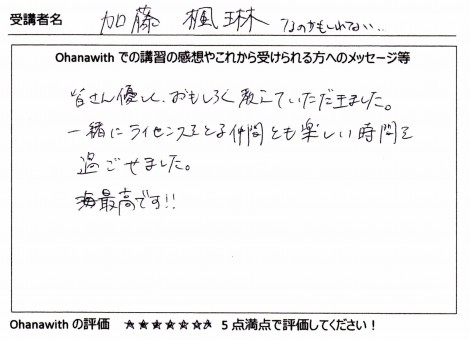 受講者名 加藤 楓琳 なのかもしれない..
Ohanawith での講習の感想やこれから受けられる方へのメッセージ等
皆さん優しく、おもしろく教えていただきました。
一緒にライセンスをとる仲間とも楽しい時間を
過ごせました。
海最高です!!
Ohanawith の評価 ★★★★★★★ 5点満点で評価してください！